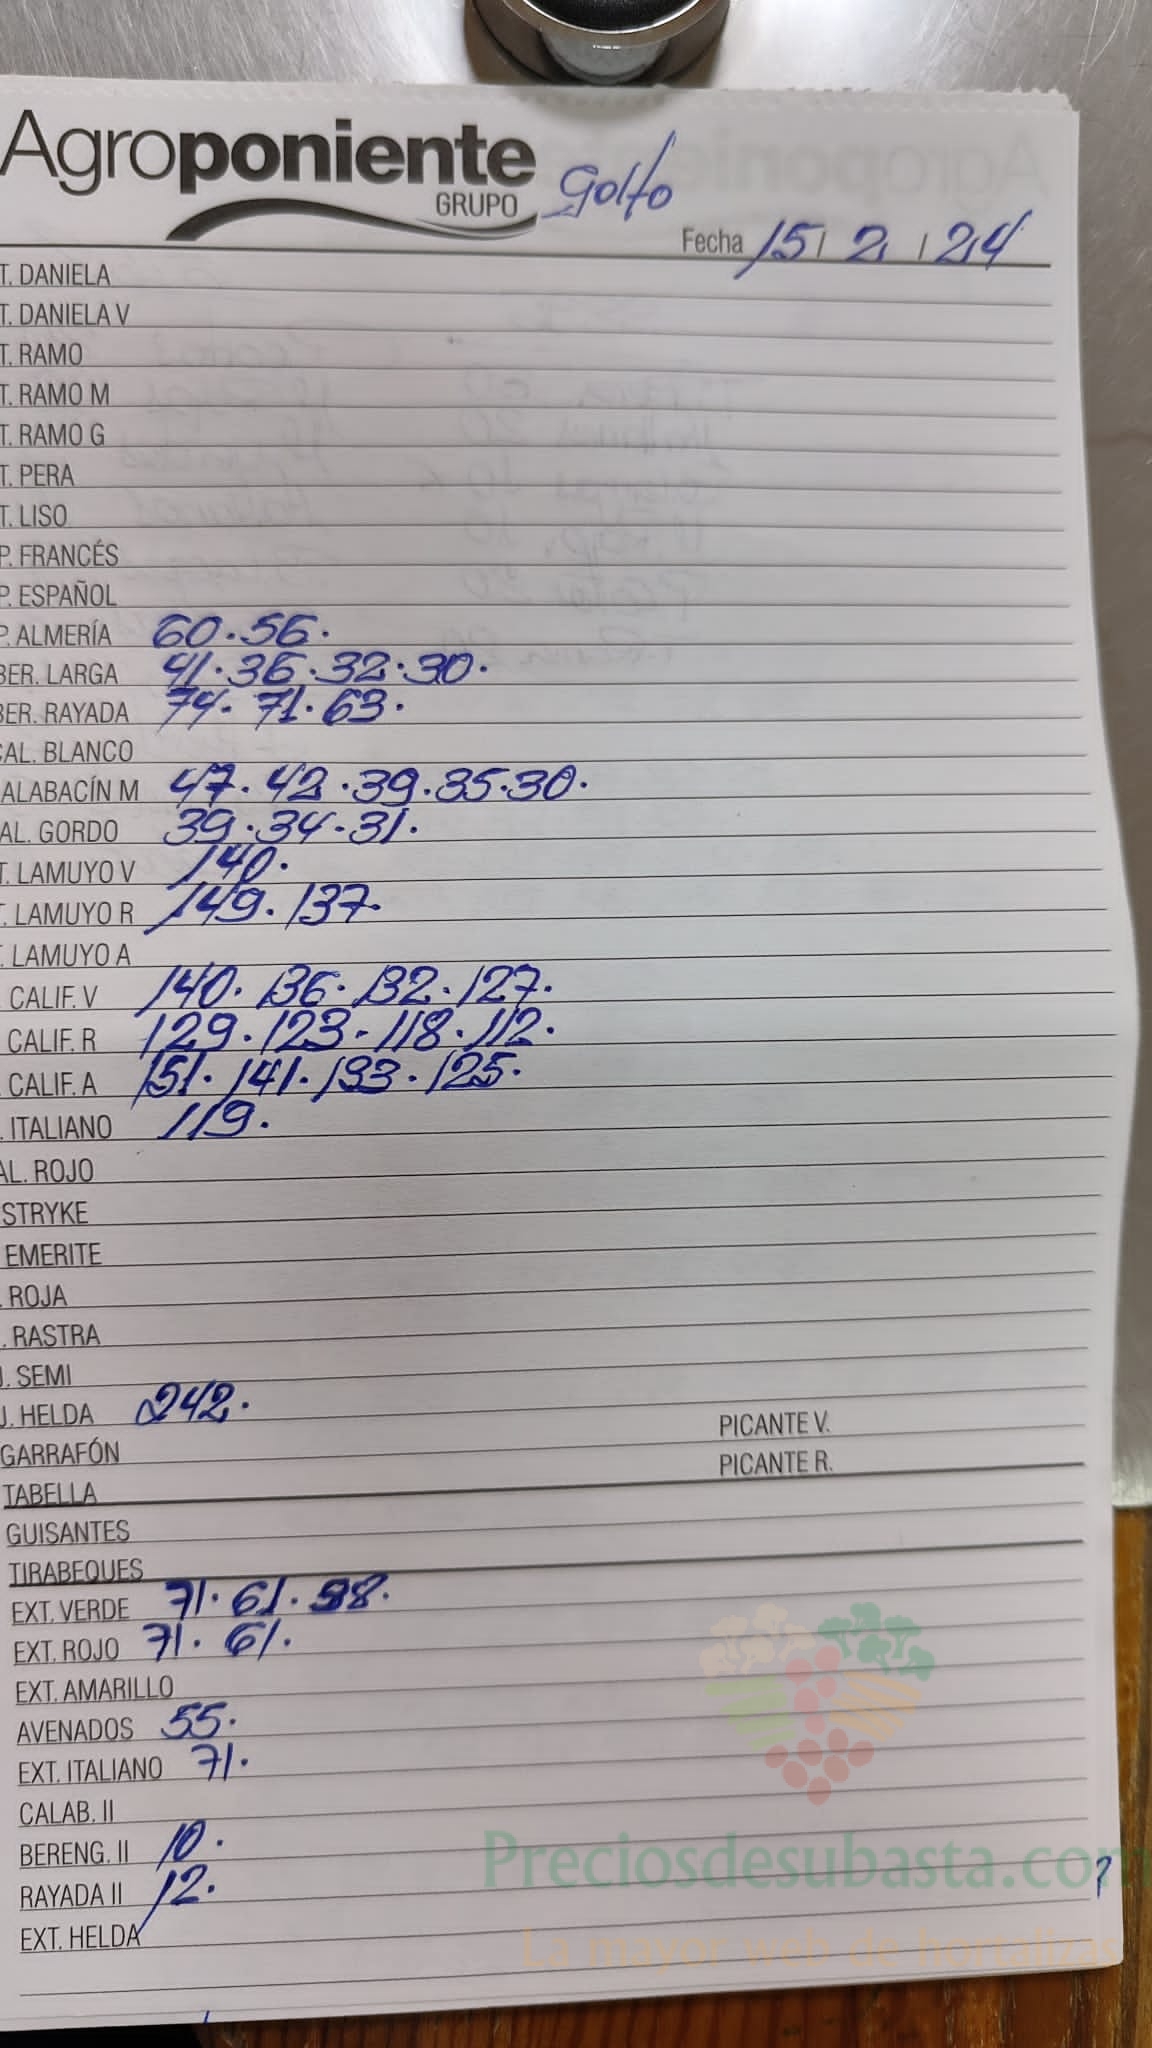 Agroponiente
GRUPO
Golfo
Fecha 15 / 2 / 24
T. DANIELA
T. DANIELA V
T. RAMO
T. RAMO M
T. RAMO G
T. PERA
T. LISO
P. FRANCÉS
P. ESPAÑOL
P. ALMERÍA 60. 56.
BER. LARGA 41. 36. 32. 30.
BER. RAYADA 74. 71. 63.
CAL. BLANCO
ALABACÍN M 47. 42. 39. 35. 30.
AL. GORDO 39. 34. 31.
T. LAMUYO V 140.
T. LAMUYO R 149. 137.
. LAMUYO A
. CALIF. V 140. 136. 132. 127.
CALIF. R 129. 123. 118. 112.
. CALIF. A 151. 141. 133. 125.
. ITALIANO 119.
AL. ROJO
STRYKE
EMERITE
. ROJA
. RASTRA
J. SEMI
J. HELDA 242.
GARRAFÓN
PICANTE V.
TABELLA
PICANTE R.
GUISANTES
TIRABEQUES
EXT. VERDE 71. 61.
EXT. ROJO 71. 61.
EXT. AMARILLO
AVENADOS 55.
EXT. ITALIANO 71.
CALAB. II
BERENG. II 10.
RAYADA II 12.
EXT. HELDA
Preciosdesubasta.com
La mayor web de hortalizas